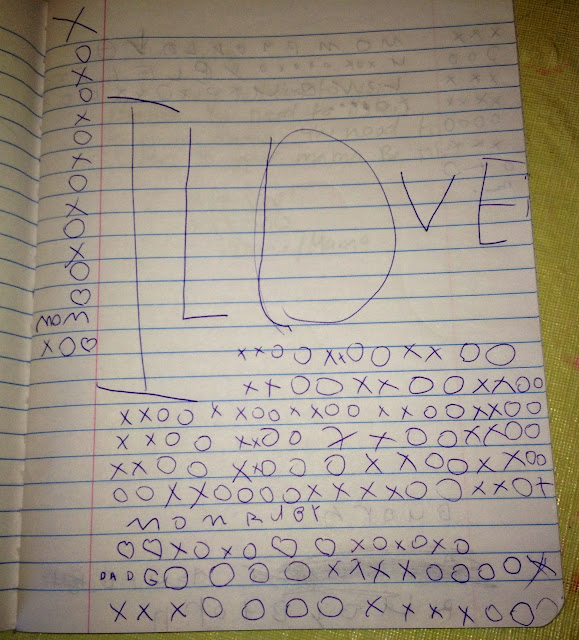 X
O
X
O
X
O
X
O
X
O
X
O
♡
MOM
XO♡
I LOVE
XXOOXXOOXXOO
XXOOXXOOXXOO
XXOO XXOOXXOO XXOOXXOO
XXOO XXOO XXOOXXOO
XXOO XXOOO XXOOXXOO
OOXXOOOOXXXXOOXXOX
MOM RUBY
♡♡XOXO♡♡XOXOXO
DAD OOOOOXXXXOOOOX
XXXOOOOXXXXOOO